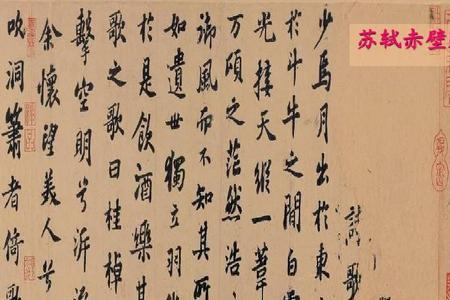 苏轼赤壁
歌
少焉月出於東
於斗牛之間白
光接天縱一葦
万頃之茫然浩
御風而不知其所
如遺世獨立羽
於是飲酒樂甚
歌之歌曰桂棹
擊空明兮泝
余懷望美人兮
吹洞簫者倚歌